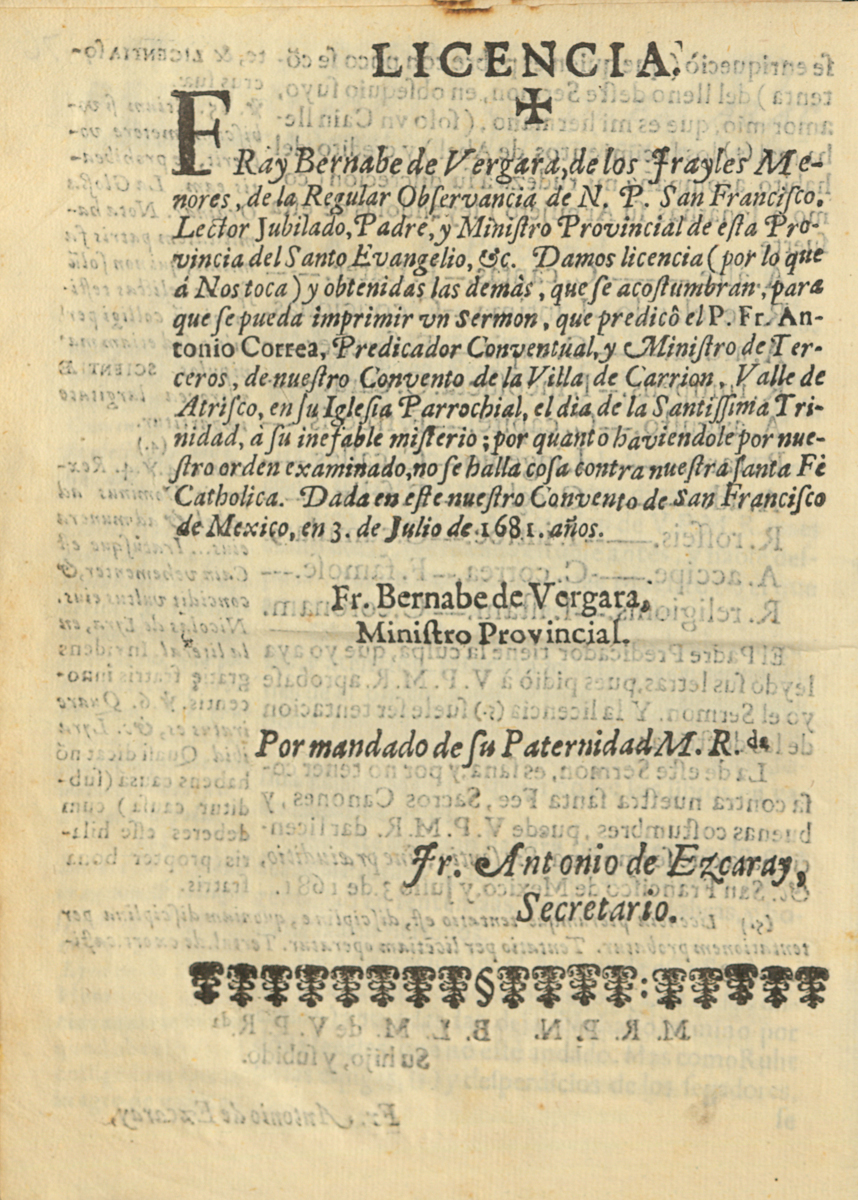 LICENCIA.
✠
FRay Bernabe de Vergara, de los Frayles Me-
nores, de la Regular Obſervancia de N. P. San Franciſco.
Lector Jubilado, Padre, y Miniſtro Provincial de eſta Pro-
vincia del Santo Evangelio, &c. Damos licencia (por lo que
á Nos toca) y obtenidas las demàs, que ſe acoſtumbran, para
que ſe pueda imprimir vn Sermon, que predicô el P. Fr. An-
tonio Correa, Predicador Conventual, y Miniſtro de Ter-
ceros, de nueſtro Convento de la Villa de Carrion, Valle de
Atriſco, en ſu Igleſia Parrochial, el dia de la Santiſſima Tri-
nidad, à ſu inefable miſterio; por quanto haviendole por nue-
ſtro orden examinado, no ſe halla coſa contra nueſtra ſanta Fè
Catholica. Dada en eſte nueſtro Convento de San Franciſco
de Mexico, en 3. de Julio de 1681. años.
Fr. Bernabe de Vergara,
Miniſtro Provincial.
Por mandado de ſu Paternidad M. R.da
Fr. Antonio de Ezcaray,
Secretario.